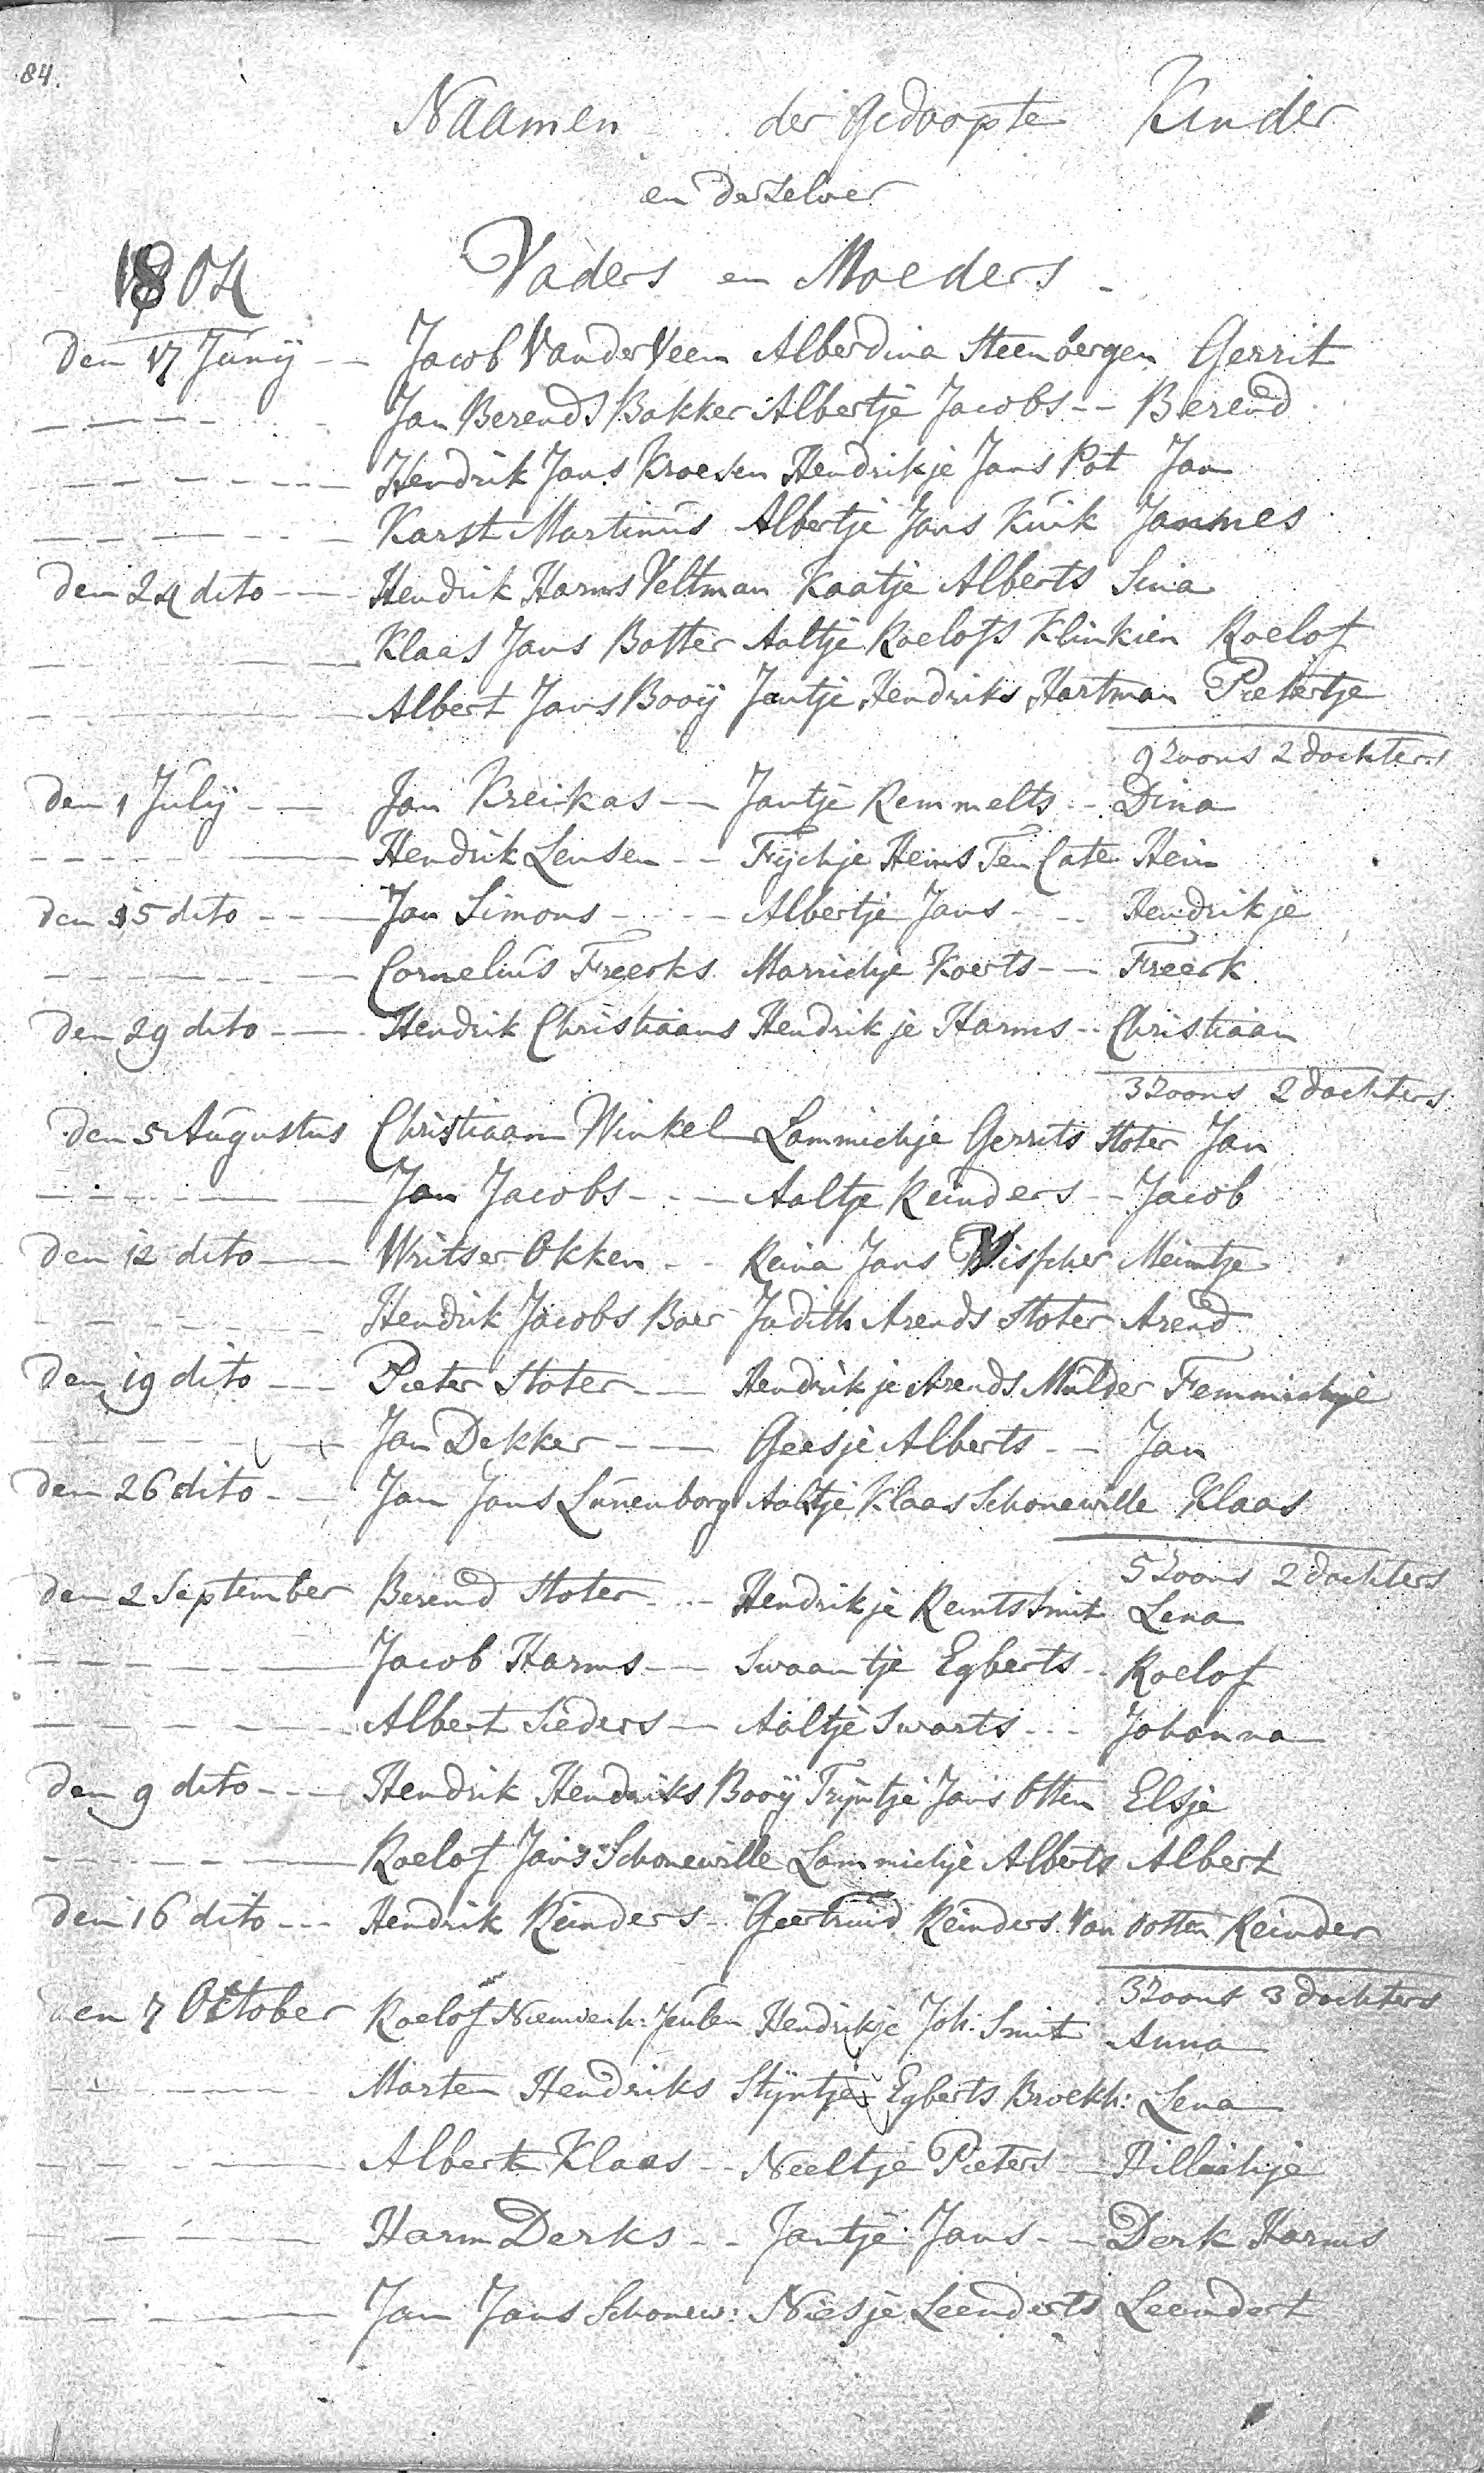 84.
Naamen der gedoopte Kinder
en derzelver
1804 Vaders en Moeders -
den 17 Junij -- Jacob Van der Veen Alberdina Steenbergen Gerrit
---- Jan Berends Bakker Albertje Jacobs -- Berend
------ Hendrik Jans Kroesen Hendrikje Jans Pot Jan
------ Karst Martinus Albertje Jans Kuik Jannes
den 24 dito --- Hendrik Harms Veltman Kaatje Alberts Sina
-- Klaas Jans Botter Aaltje Roelofs Klinkien Roelof
------ Albert Jans Booij Jantje Hendriks Hartman Pietertje
9 Zoons 2 dochters
den 1 Julij -- Jan Kreikas -- Jantje Remmelts -- Dina
------ Hendrik Lensen -- Fijchje Heins Ten Cate Hein
den 15 dito --- Jan Simons ---- Albertje Jans -- Hendrikje
------ Cornelius Freerks Marrichje Koerts -- Freerk
den 29 dito --- Hendrik Christiaans Hendrikje Harms -- Christiaan
3 Zoons 2 dochters
den 5 Augustus Christiaan Winkel Lammichje Gerrits Stoter Jan
------ Jan Jacobs --- Aaltje Reinders -- Jacob
den 12 dito -- Writser Okken -- Reina Jans Visscher Meintje
------ Hendrik Jacobs Boer Judith Arends Stoter Arend
den 19 dito -- Pieter Stoter -- Hendrikje Arends Mulder Femmichje
------ Jan Dekker -- Geesje Alberts -- Jan
den 26 dito -- Jan Jans Lunenborg Aaltje Klaas Schonewille Klaas
5 Zoons 2 dochters
den 2 September Berend Stoter --- Hendrikje Remts Smit Lena
------ Jacob Harms -- Swaantje Egberts -- Roelof
------ Albert Sieders -- Aaltje Swarts --- Johanna
den 9 dito --- Hendrik Hendriks Booij Trijntje Jans Otten Elsje
------ Roelof Jans Schonewille Lammichje Alberts Albert
den 16 dito --- Hendrik Reinders -- Geertruid Reinders Van Reinder
3 Zoons 3 dochters
den 7 October Roelof Hendrikje Joh. Smit Anna
------ Marten Hendriks Stijntje Egberts Broekh: Lena
------ Albert Klaas -- Neeltje Pieters -- Hillichje
------ Harm Derks -- Jantje Jans -- Derk Harms
------ Jan Jans Schonew: Niesje Leenderts Leendert